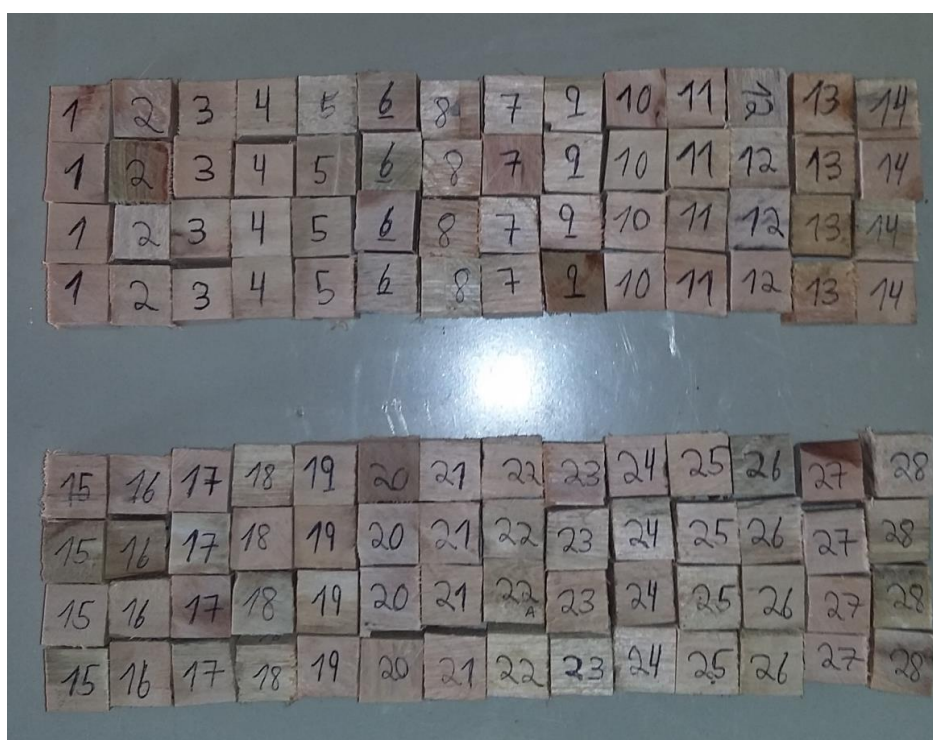 1 2 3 4 5 6 8 7 9 10 11 12 13 14
1 2 3 4 5 6 8 7 9 10 11 12 13 14
1 2 3 4 5 6 8 7 9 10 11 12 13 14
1 2 3 4 5 6 8 7 9 10 11 12 13 14
15 16 17 18 19 20 21 22 23 24 25 26 27 28
15 16 17 18 19 20 21 22 23 24 25 26 27 28
15 16 17 18 19 20 21 22 A 23 24 25 26 27 28
15 16 17 18 19 20 21 22 23 24 25 26 27 28